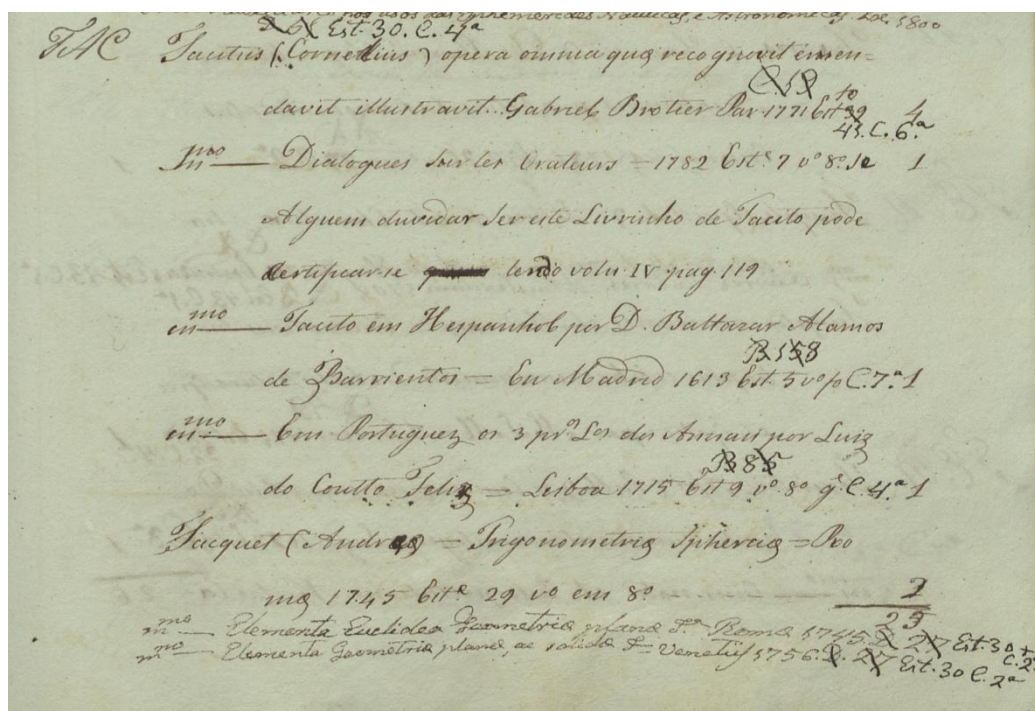 nos usos das Ephemerides Nauticas, e Astronomicas. Lxª 1800
D 6 Est. 30. C. 4ª
TAC Tacitus (Cornelius) opera omnia quæ recognovit emen-
C 59 to
davit illustravit Gabriel Brotier Par 1771 Est 4
43. C. 6.ª
mmo — Dialogues sur les Orateurs = 1782 Est.e 7 vº 8º se 1
Alguem duvidar ser este Livrinho de Tacito pode
certificarse lendo volu IV pag 119
mmo — Tacito em Hespanhol por D. Baltazar Alamos
B 158
de Barrientos = En Madrid 1613 Est. 5 vº pº C. 7.ª 1
mmo — Em Portuguez os 3 prºs Los dos Annaes por Luiz
B 85
do Coutto Felix = Lisboa 1715 Est 9 vº 8º gº C. 4.ª 1
Tacquet (Andreæ) = Trigonometria Sphericæ = Ro
mæ 1745 Estº 29 vº em 8º 1
mmo — Elementa Euclidea Geometriæ planæ Romæ 1745. D 27 Est. 30 C. 2
mmo — Elementa Geometriæ planæ, ac solidæ Venetiis 1756. D. 27 Est. 30 C. 2ª